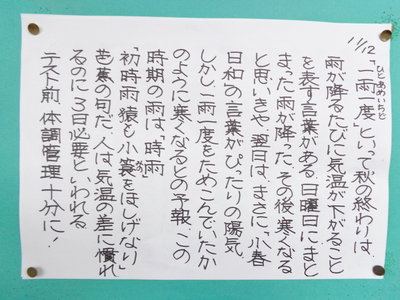 11/12
「一雨一度」といって秋の終わりは、
雨が降るたびに気温が下がること
を表す言葉がある。日曜日にまと
まった雨が降った。その後寒くなる
と思いきや翌日は、まさに、「小春
日和」の言葉がぴったりの陽気。
しかし、一雨一度をためこんでいたか
のように寒くなるとの予報。この
時期の雨は、「時雨」
「初時雨猿も小簑をほしげなり」
芭蕉の句だ。人は気温の差に慣れ
るのに3日必要といわれる。
テスト前、体調管理十分に!